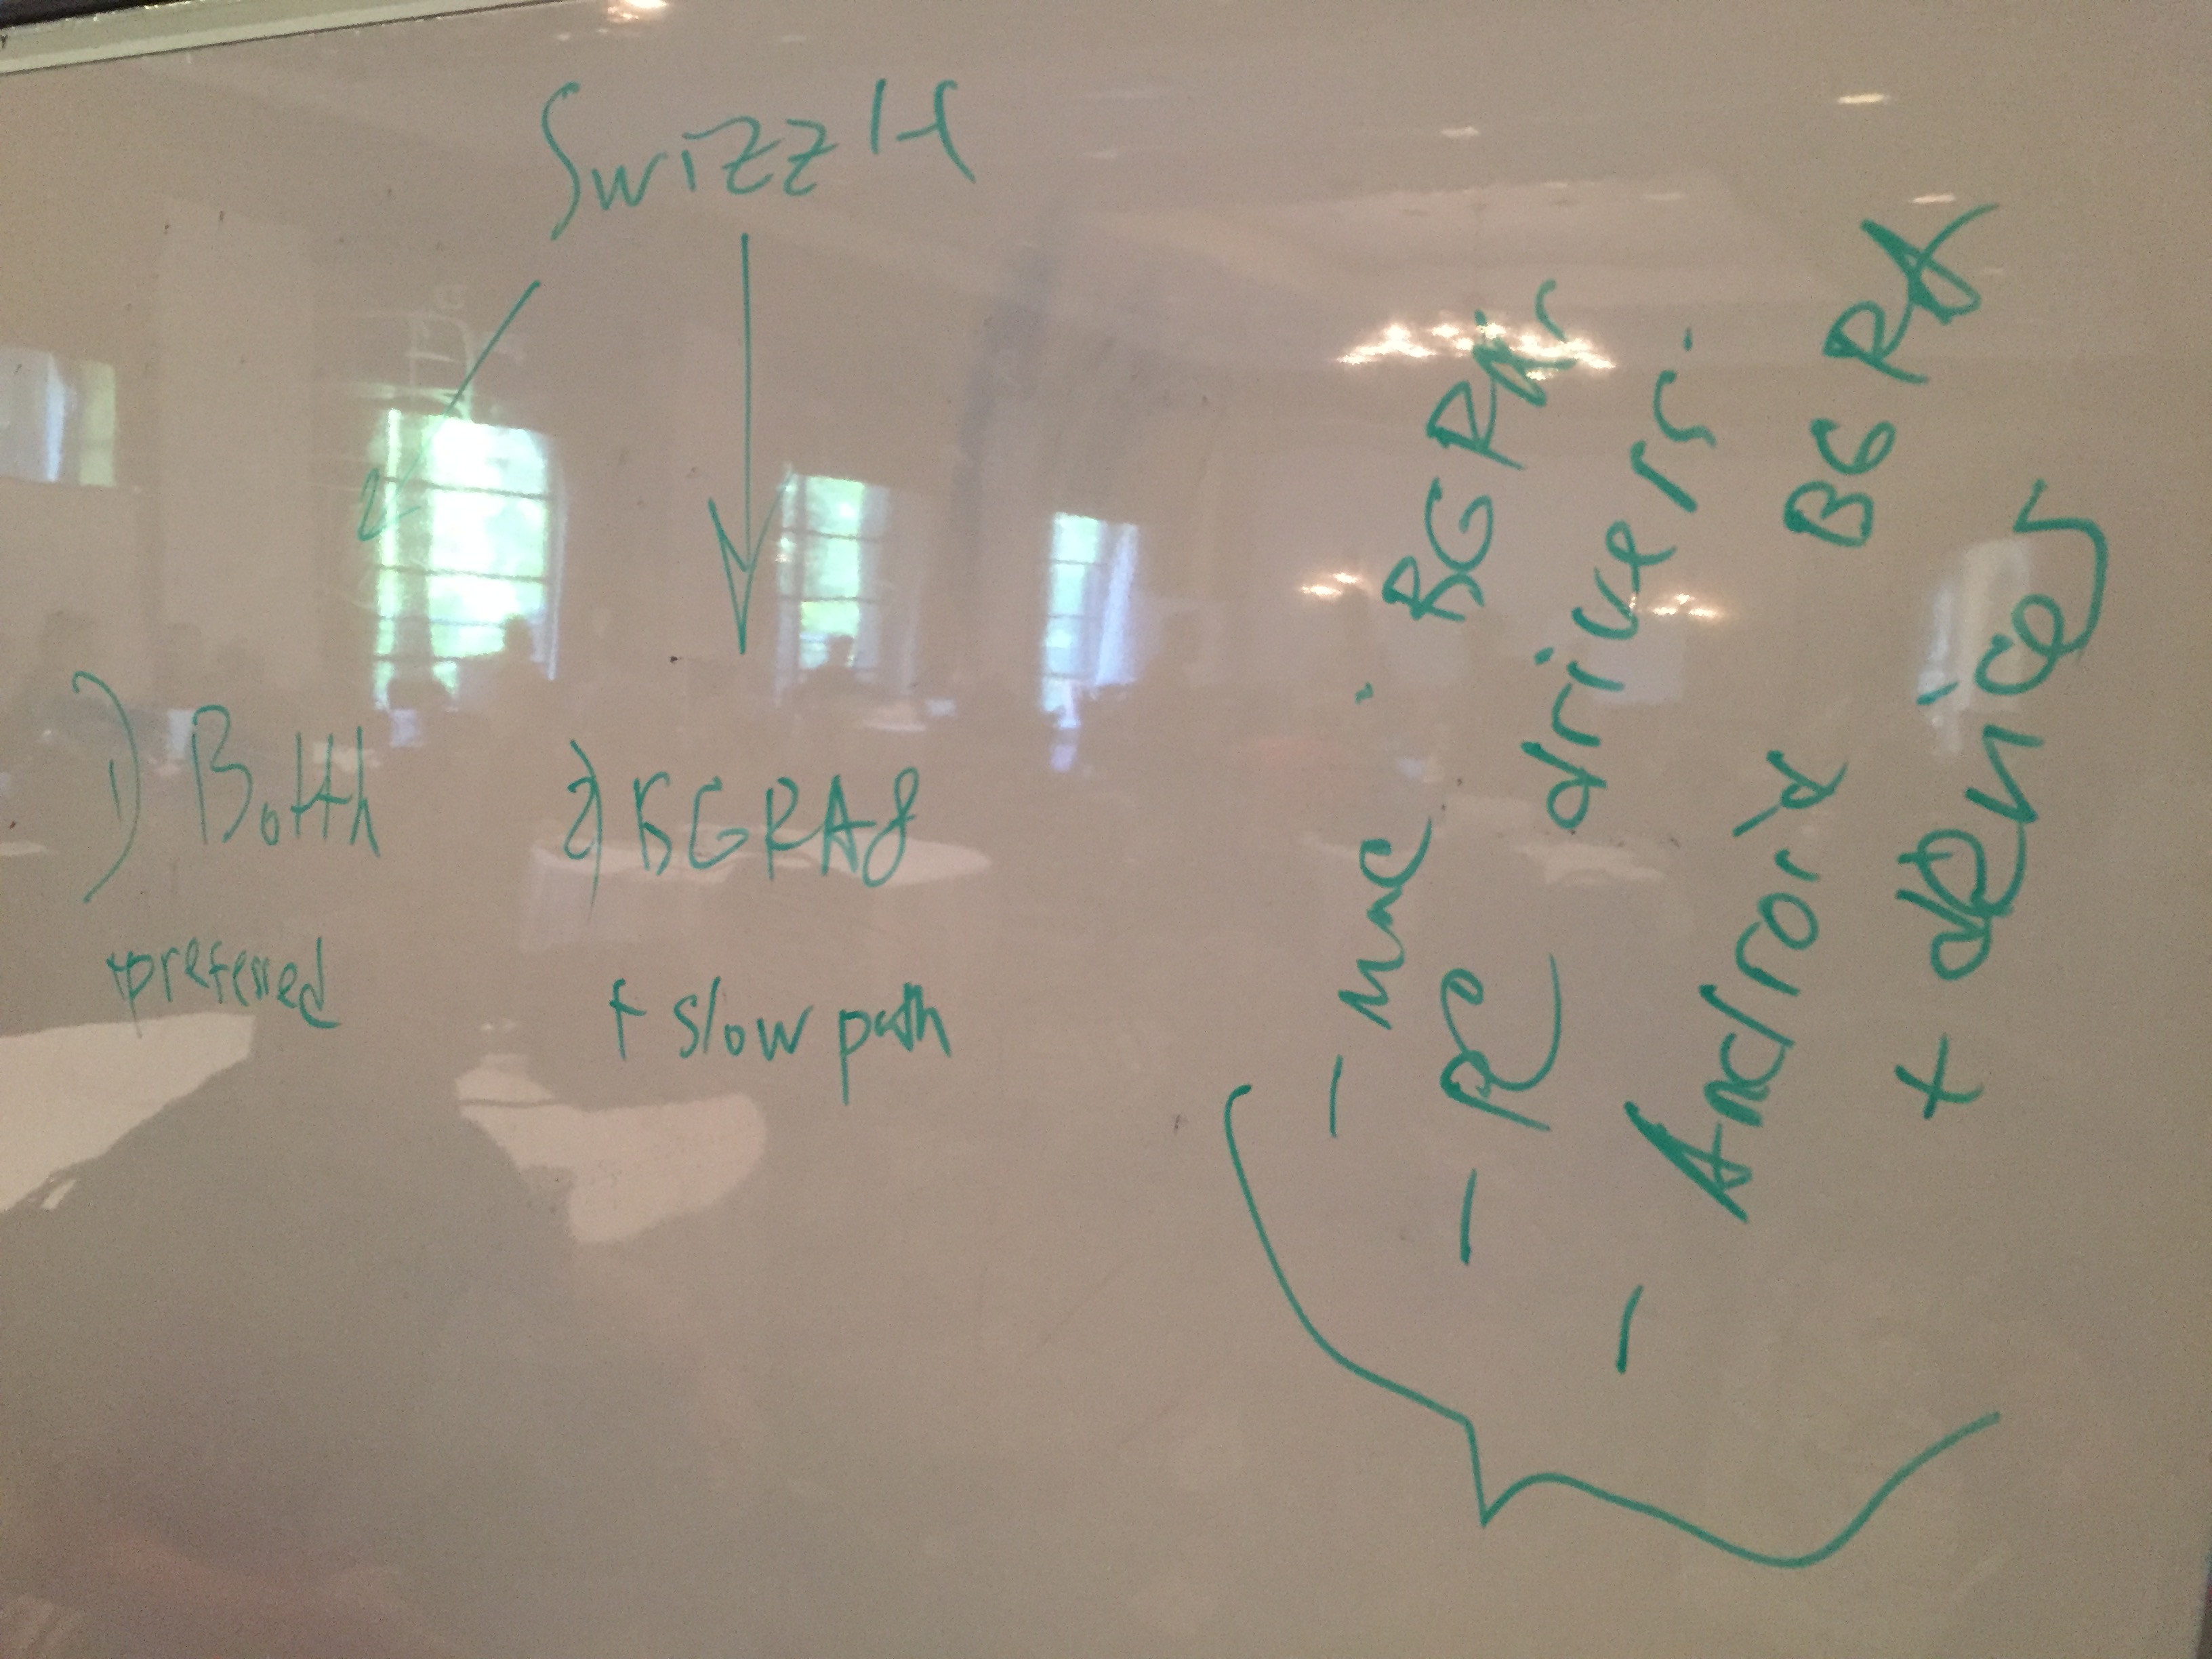 Swizzle
1) Both
2) BGRA8
+preferred
+ slow path
- Mac: BGRA
- PC drivers:
- Android BGRA
+ devices